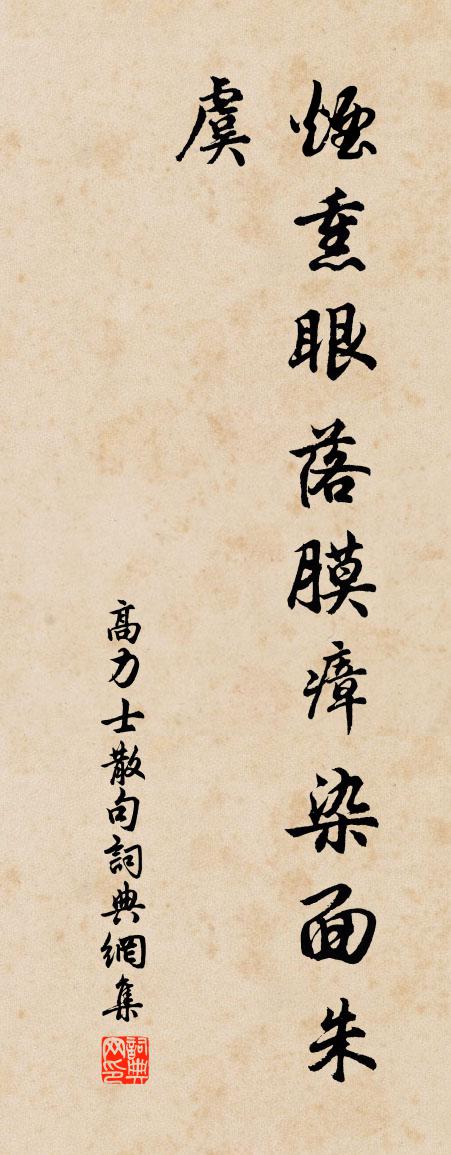 煙熏眼落膜瘴染面朱
虞
高力士散句詞典網集
詞典
网印